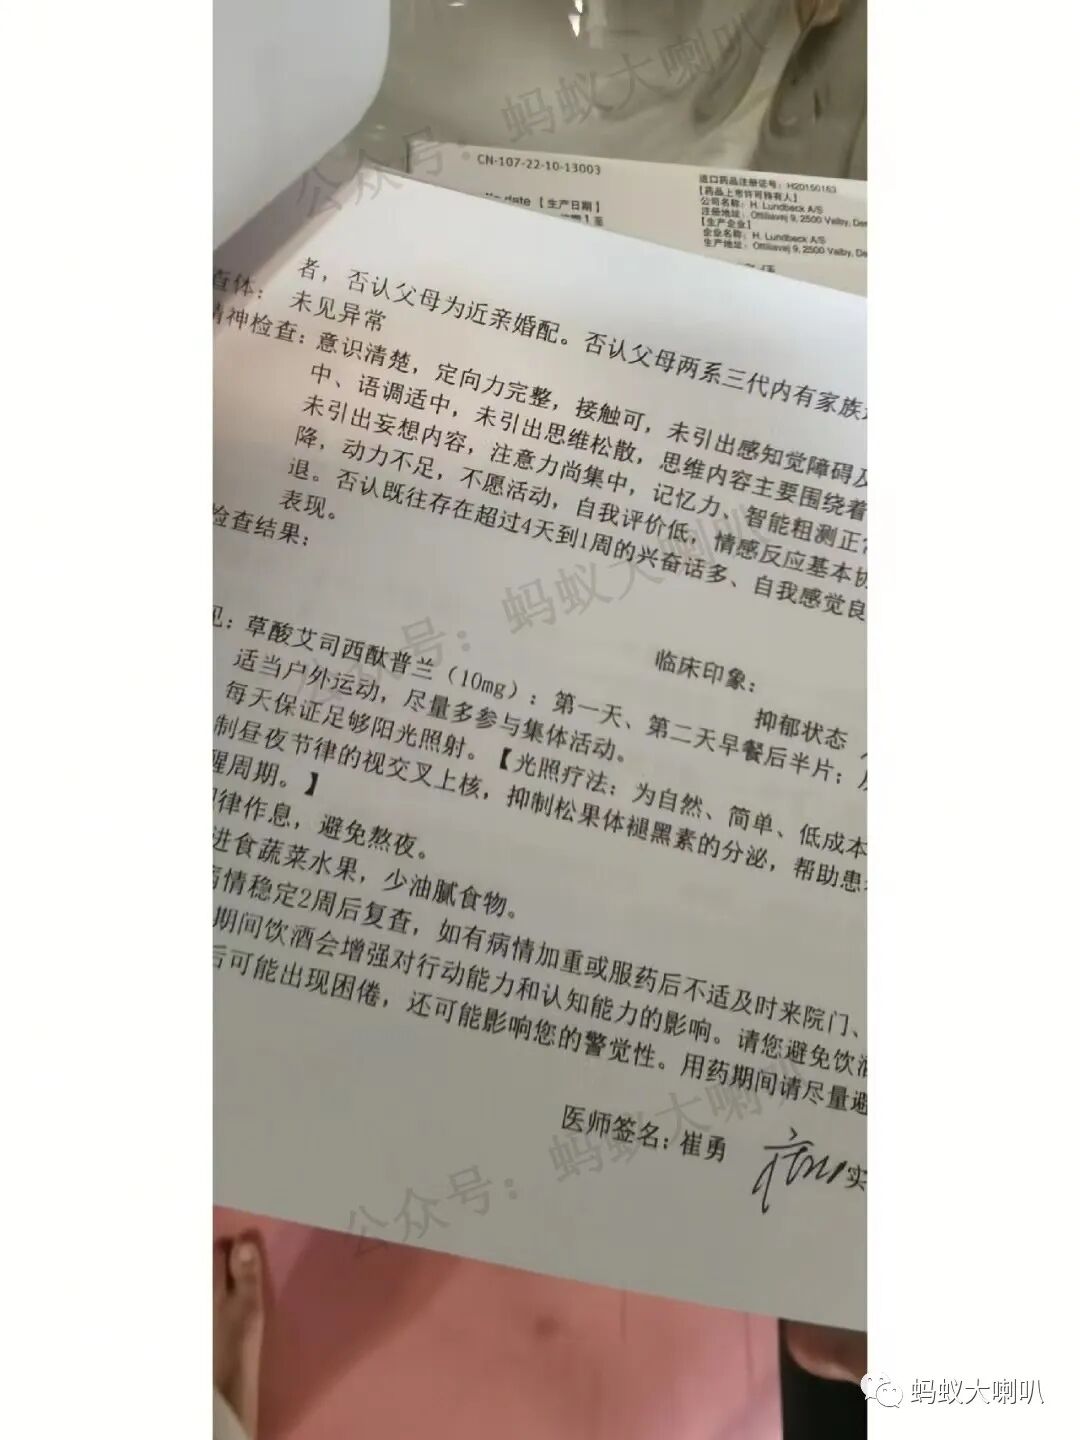 CN-107-22-10-13003
date 【生产日期】
进口药品注册证号：H20150163
【药品上市许可持有人】
公司名称：H. Lundbeck A/S
注册地址：Ottiliavej 9, 2500 Valby, De
【生产企业】
企业名称：H. Lundbeck A/S
生产地址：Ottiliavej 9, 2500 Valby, De
者，否认父母为近亲婚配。否认父母两系三代内有家族
查体： 未见异常
精神检查：意识清楚，定向力完整，接触可，未引出感知觉障碍及
中、语调适中，未引出思维松散，思维内容主要围绕着
未引出妄想内容，注意力尚集中，记忆力、智能粗测正常
降，动力不足，不愿活动，自我评价低，情感反应基本协
退。否认既往存在超过4天到1周的兴奋话多、自我感觉良
表现。
检查结果：
临床印象：
抑郁状态
见：草酸艾司西酞普兰（10mg）：第一天、第二天早餐后半片；
适当户外运动，尽量多参与集体活动。
每天保证足够阳光照射。【光照疗法：为自然、简单、低成本
制昼夜节律的视交叉上核，抑制松果体褪黑素的分泌，帮助患
醒周期。】
律作息，避免熬夜。
进食蔬菜水果，少油腻食物。
病情稳定2周后复查，如有病情加重或服药后不适及时来院门、
期间饮酒会增强对行动能力和认知能力的影响。请您避免饮酒
后可能出现困倦，还可能影响您的警觉性。用药期间请尽量避
医师签名：崔勇
实
公众号：蚂蚁大喇叭
公众号：蚂蚁大喇叭
公众号：蚂蚁大喇叭
蚂蚁大喇叭